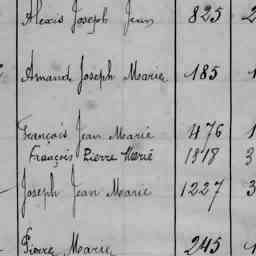 Alexis Joseph Jean 825 2
Armand Joseph Marie 185 1
François Jean Marie 476 1
François Pierre Marie 1318 3
Joseph Jean Marie 1227 3
Pierre Marie 245 1